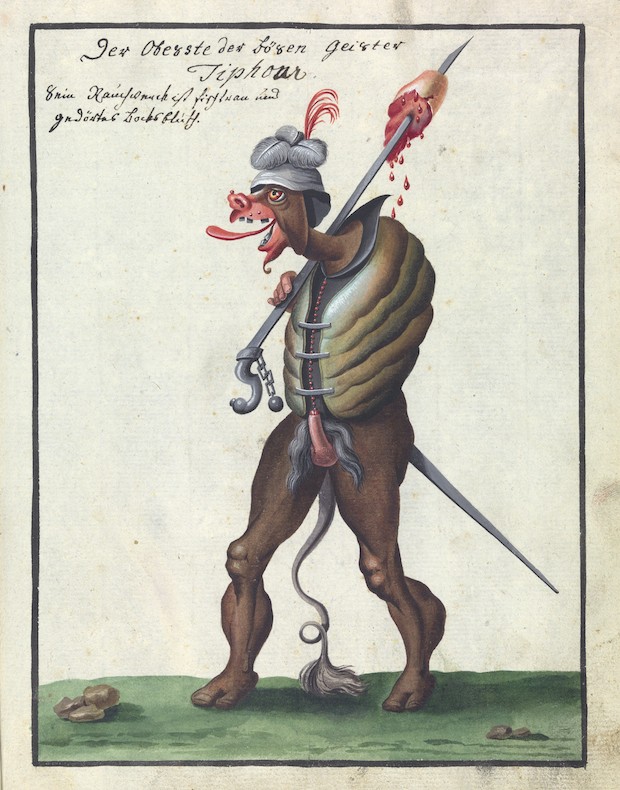 Der Obesste der bösen Geister
Tiphour
Sein Rauchwerch ist
gedörtes Bocksbluth.